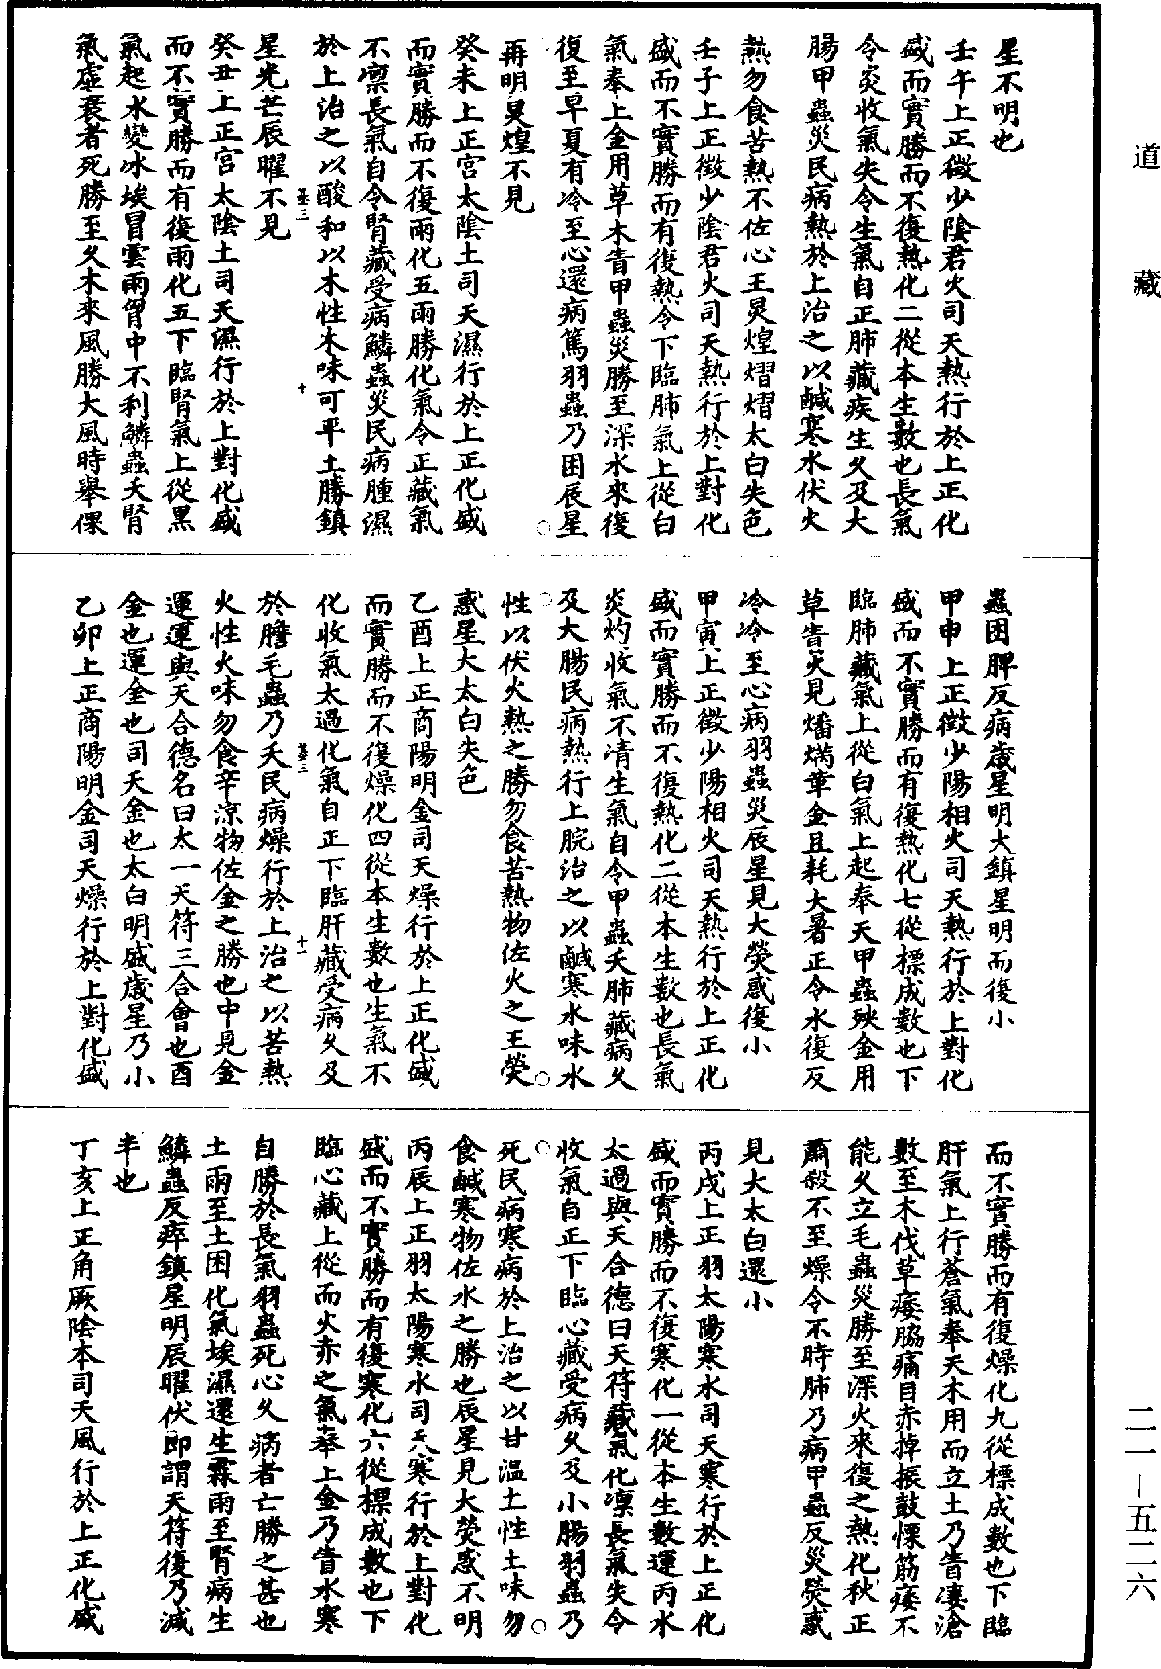 道藏
星不明也
壬午上正徵少陰君火司天熱行於上正化
盛而實勝而不復熱化二從本生數也長氣
令炎收氣失令生氣自正肺藏疾生久及大
腸甲蟲災民病熱於上治之以鹹寒水伏火
熱勿食苦熱不佐心王炅煌熠熠太白失色
壬子上正徵少陰君火司天熱行於上對化
盛而不實勝而有復熱令下臨肺氣上從白
氣奉上金用草木眚甲蟲災勝至深水來復
復至早夏有冷至心還病篤羽蟲乃困辰星
再明炅煌不見
癸未上正宮太陰土司天濕行於上正化盛
而實勝而不復雨化五雨勝化氣令正藏氣
不稟長氣自令腎藏受病鱗蟲災民病腫濕
於上治之以酸和以木性木味可平土勝鎮
星光芒辰曜不見
癸丑上正宮太陰土司天濕行於上對化盛
而不實勝而有復雨化五下臨腎氣上從黑
氣起水變冰埃冒雲雨胷中不利鱗蟲夭腎
氣虛衰者死勝至久木來風勝大風時舉倮
蟲困脾反病歲星明大鎮星明而復小
甲申上正徵少陽相火司天熱行於上對化
盛而不實勝而有復熱化七從標成數也下
臨肺藏氣上從白氣上起奉天甲蟲殃金用
草眚災見燔焫革金且耗大暑正令水復反
冷冷至心病羽蟲災辰星見大熒惑復小
甲寅上正徵少陽相火司天熱行於上正化
盛而實勝而不復熱化二從本生數也長氣
炎灼收氣不清生氣自令甲蟲夭肺藏病久
及大腸民病熱行上脘治之以鹹寒水味水
性以伏火熱之勝勿食苦熱物佐火之王熒
惑星大太白失色
乙酉上正商陽明金司天燥行於上正化盛
而實勝而不復燥化四從本生數也生氣不
化收氣太過化氣自正下臨肝藏受病久及
於膽毛蟲乃夭民病燥行於上治之以苦熱
火性火味勿食辛涼物佐金之勝也中見金
運運與天合德名曰太一天符三合會也酉
金也運金也司天金也太白明盛歲星乃小
乙卯上正商陽明金司天燥行於上對化盛
而不實勝而有復燥化九從標成數也下臨
肝氣上行蒼氣奉天木用而立土乃眚凄滄
數至木伐草痿脇痛目赤掉振鼓慄筋痿不
能久立毛蟲災勝至深火來復之熱化秋正
肅殺不至燥令不時肺乃病甲蟲反災熒惑
見大太白還小
丙戌上正羽太陽寒水司天寒行於上正化
盛而實勝而不復寒化一從本生數運丙水
太過與天合德曰天符藏氣化凜長氣失令
收氣自正下臨心藏受病久及小腸羽蟲乃
死民病寒病於上治之以甘溫土性土味勿
食鹹寒物佐水之勝也辰星見大熒惑不明
丙辰上正羽太陽寒水司天寒行於上對化
盛而不實勝而有復寒化六從標成數也下
臨心藏上從而火赤之氣奉上金乃眚水寒
自勝於長氣羽蟲死心久病者亡勝之甚也
土雨至土困化氣埃濕還生霖雨至腎病生
鱗蟲反瘁鎮星明辰曜伏即謂天符復乃減
半也
丁亥上正角厥陰本司天風行於上正化盛
二一—五二六